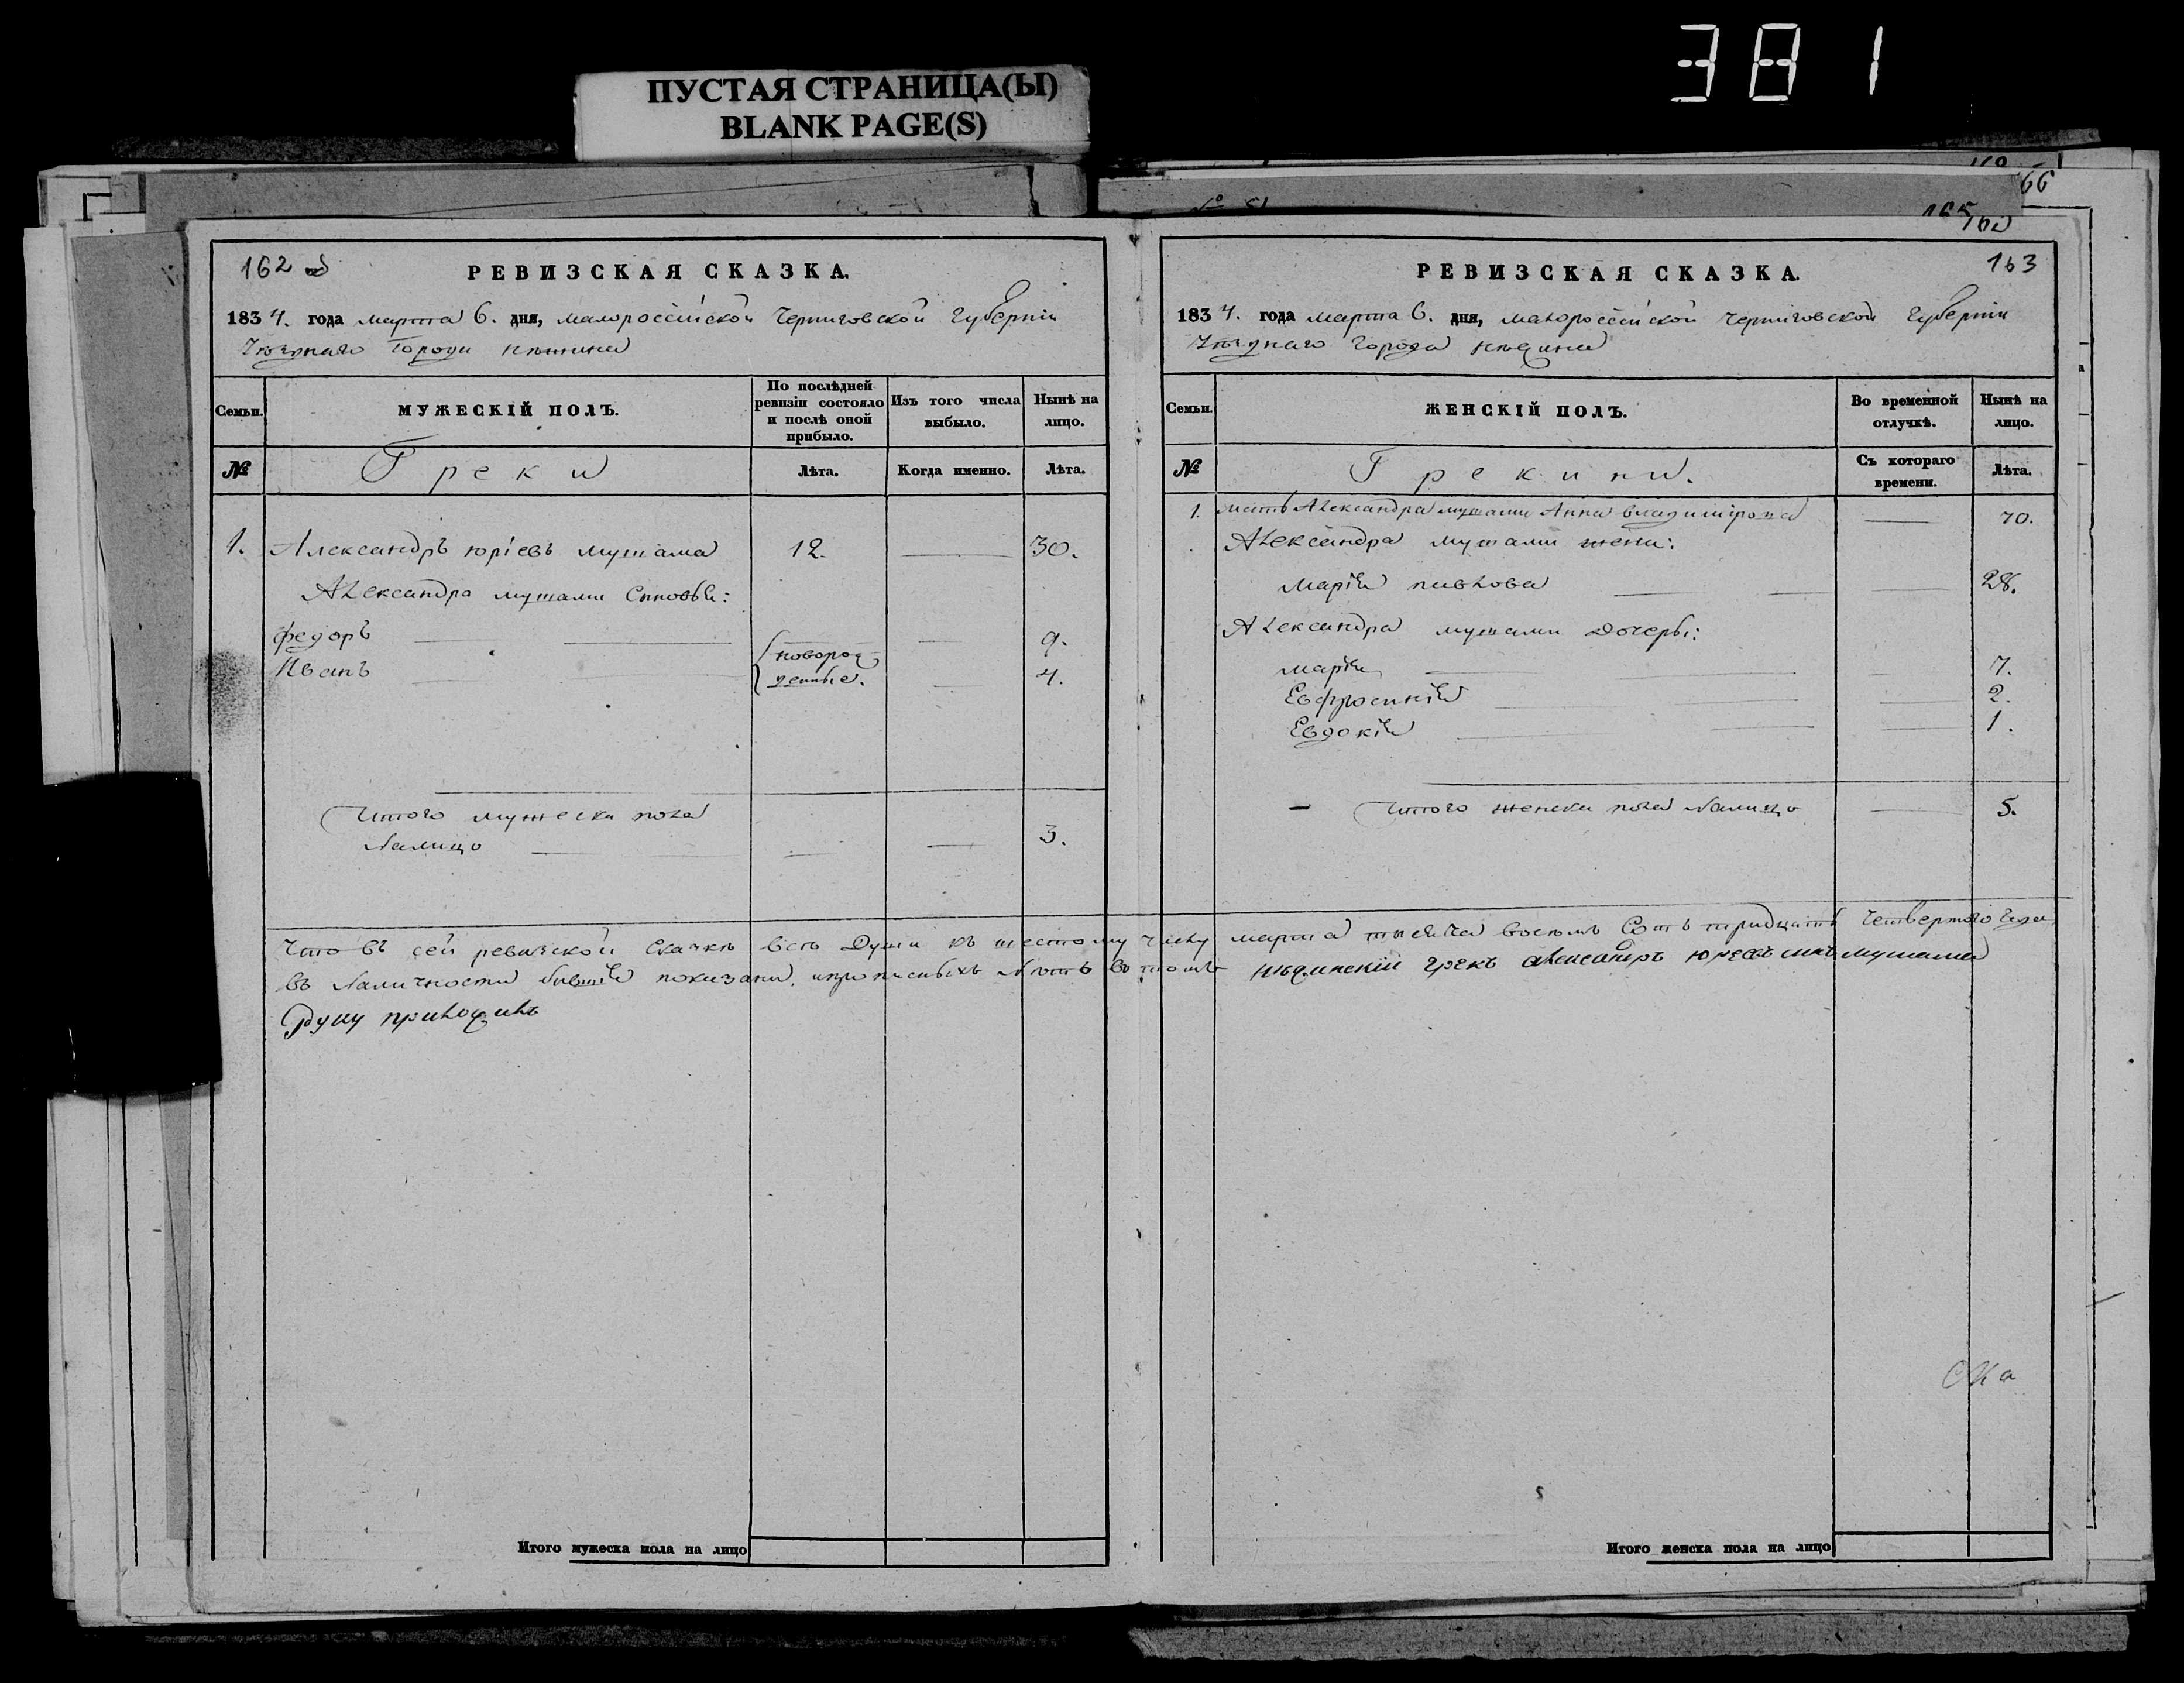 381
ПУСТАЯ СТРАНИЦА(Ы)
BLANK PAGE(S)
66
165
162
РЕВИЗСКАЯ СКАЗКА.
1834. года марта 6. дня, малороссійской Черниговской Губерніи
Уѣзднаго Города нѣжина
Семьи. МУЖЕСКІЙ ПОЛЪ. По послѣдней ревизіи состояло и послѣ оной прибыло. Изъ того числа выбыло. Нынѣ на лицо.
№ Греки Лѣта. Когда именно. Лѣта.
1. Александръ юріевъ мутама 12. 30.
Александра мутами Сыновья:
федоръ новорож 9.
Иванъ денные. 4.
Итого мужеска пола
Налицо 3.
Итого мужеска пола на лицо
163
РЕВИЗСКАЯ СКАЗКА.
1834. года марта 6. дня, малороссійской Черниговской Губерніи
Уѣзднаго Города нѣжина
Семьи. ЖЕНСКІЙ ПОЛЪ. Во временной отлучкѣ. Нынѣ на лицо.
№ Грекини. Съ котораго времени. Лѣта.
1. мать Александра мутами Анна владимірова 70.
Александра мутами жена:
марія павлова 28.
Александра мутами Дочеры:
марія 7.
Евфросинія 2.
Евдокія 1.
Итого женска пола Налицо 5.
Что въ сей ревизской Сказкѣ всѣ Души къ шестому числу марта тысяча восемь Сотъ тридцать Четвертого Года
въ Наличности бывшія показани, и прописныхъ Нѣтъ въ томъ нѣжинскій грекъ александръ юрьевъ синъ мутама
Руку приложилъ
Итого женска пола на лицо